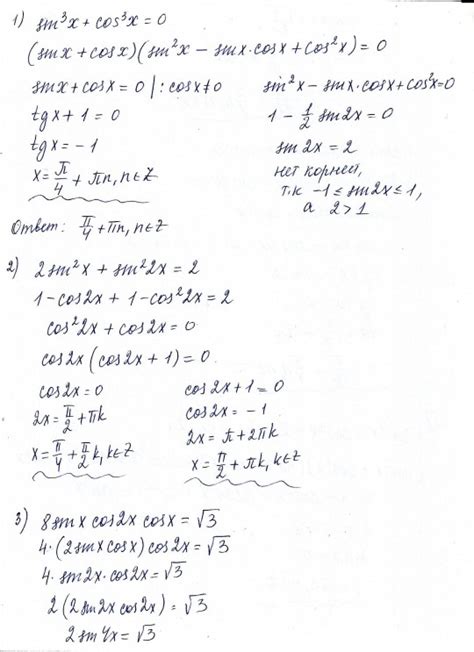 1) sin³x + cos³x = 0
(sinx + cosx)(sin²x − sinx·cosx + cos²x) = 0
sinx + cosx = 0 | : cosx ≠ 0
tgx + 1 = 0
tgx = −1
x = π/4 + πn, n∈Z
sin²x − sinx·cosx + cos²x = 0
1 − 1/2 sin2x = 0
sin2x = 2
нет корней,
т.к −1 ≤ sin2x ≤ 1,
а 2 > 1
Ответ: π/4 + πn, n∈Z
2) 2sin²x + sin²2x = 2
1 − cos2x + 1 − cos²2x = 2
cos²2x + cos2x = 0
cos2x (cos2x + 1) = 0
cos2x = 0
2x = π/2 + πk
x = π/4 + π/2 k, k∈Z
cos2x + 1 = 0
cos2x = −1
2x = π + 2πk
x = π/2 + πk, k∈Z
3) 8sinx cos2x cosx = √3
4·(2sinx cosx) cos2x = √3
4·sin2x·cos2x = √3
2(2sin2x cos2x) = √3
2sin4x = √3